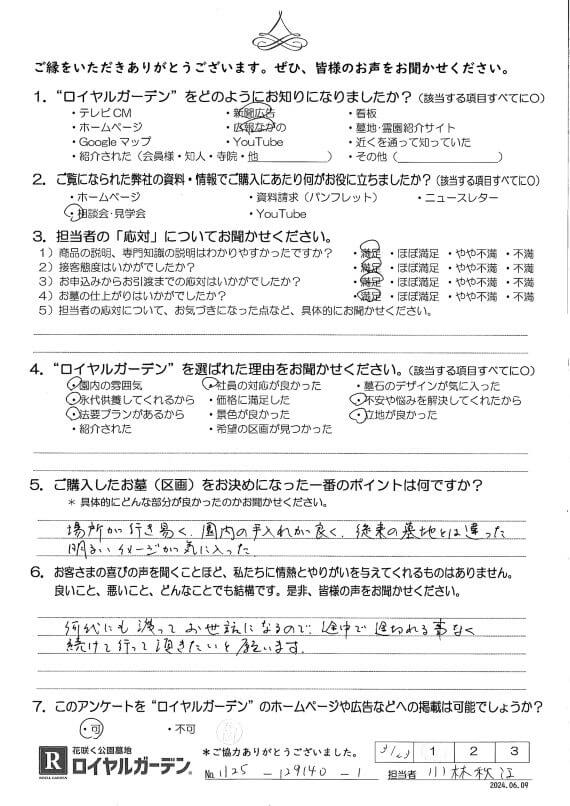 ご縁をいただきありがとうございます。ぜひ、皆様のお声をお聞かせください。
1．“ロイヤルガーデン”をどのようにお知りになりましたか？(該当する項目すべてに○)
・テレビCM ・新聞広告 ・看板
・ホームページ ・広報ながの ・墓地・霊園紹介サイト
・Googleマップ ・YouTube ・近くを通って知っていた
・紹介された（会員様・知人・寺院・他　　　　　） ・その他（　　　　　　　　）
2．ご覧になられた弊社の資料・情報でご購入にあたり何がお役に立ちましたか？(該当する項目すべてに○)
・ホームページ ・資料請求（パンフレット） ・ニュースレター
・相談会・見学会 ・YouTube
3．担当者の「応対」についてお聞かせください。
1）商品の説明、専門知識の説明はわかりやすかったですか？ ・満足 ・ほぼ満足 ・やや不満 ・不満
2）接客態度はいかがでしたか？ ・満足 ・ほぼ満足 ・やや不満 ・不満
3）お申込みからお引渡までの応対はいかがでしたか？ ・満足 ・ほぼ満足 ・やや不満 ・不満
4）お墓の仕上がりはいかがでしたか？ ・満足 ・ほぼ満足 ・やや不満 ・不満
5）担当者の応対について、お気づきになった点など、具体的にお聞かせください。
4．“ロイヤルガーデン”を選ばれた理由をお聞かせください。(該当する項目すべてに○)
・園内の雰囲気 ・社員の対応が良かった ・墓石のデザインが気に入った
・永代供養してくれるから ・価格に満足した ・不安や悩みを解決してくれたから
・法要プランがあるから ・景色が良かった ・立地が良かった
・紹介された ・希望の区画が見つかった
5．ご購入したお墓（区画）をお決めになった一番のポイントは何ですか？
＊ 具体的にどんな部分が良かったのかお聞かせください。
場所が行き易く、園内の手入れが良く、従来の墓地とは違った
明るいイメージが気に入った。
6．お客さまの喜びの声を聞くことほど、私たちに情熱とやりがいを与えてくれるものはありません。
良いこと、悪いこと、どんなことでも結構です。是非、皆様の声をお聞かせください。
何代にも渡ってお世話になるので、途中で途切れる事なく
続けて行って頂きたいと願います。
7．このアンケートを“ロイヤルガーデン”のホームページや広告などへの掲載は可能でしょうか？
・可 ・不可
花咲く公園墓地
R ROYAL GARDEN ロイヤルガーデン®
＊ご協力ありがとうございました。
1 2 3
No. 1125 - 129140 - 1 担当者 小林秋江
2024.06.09